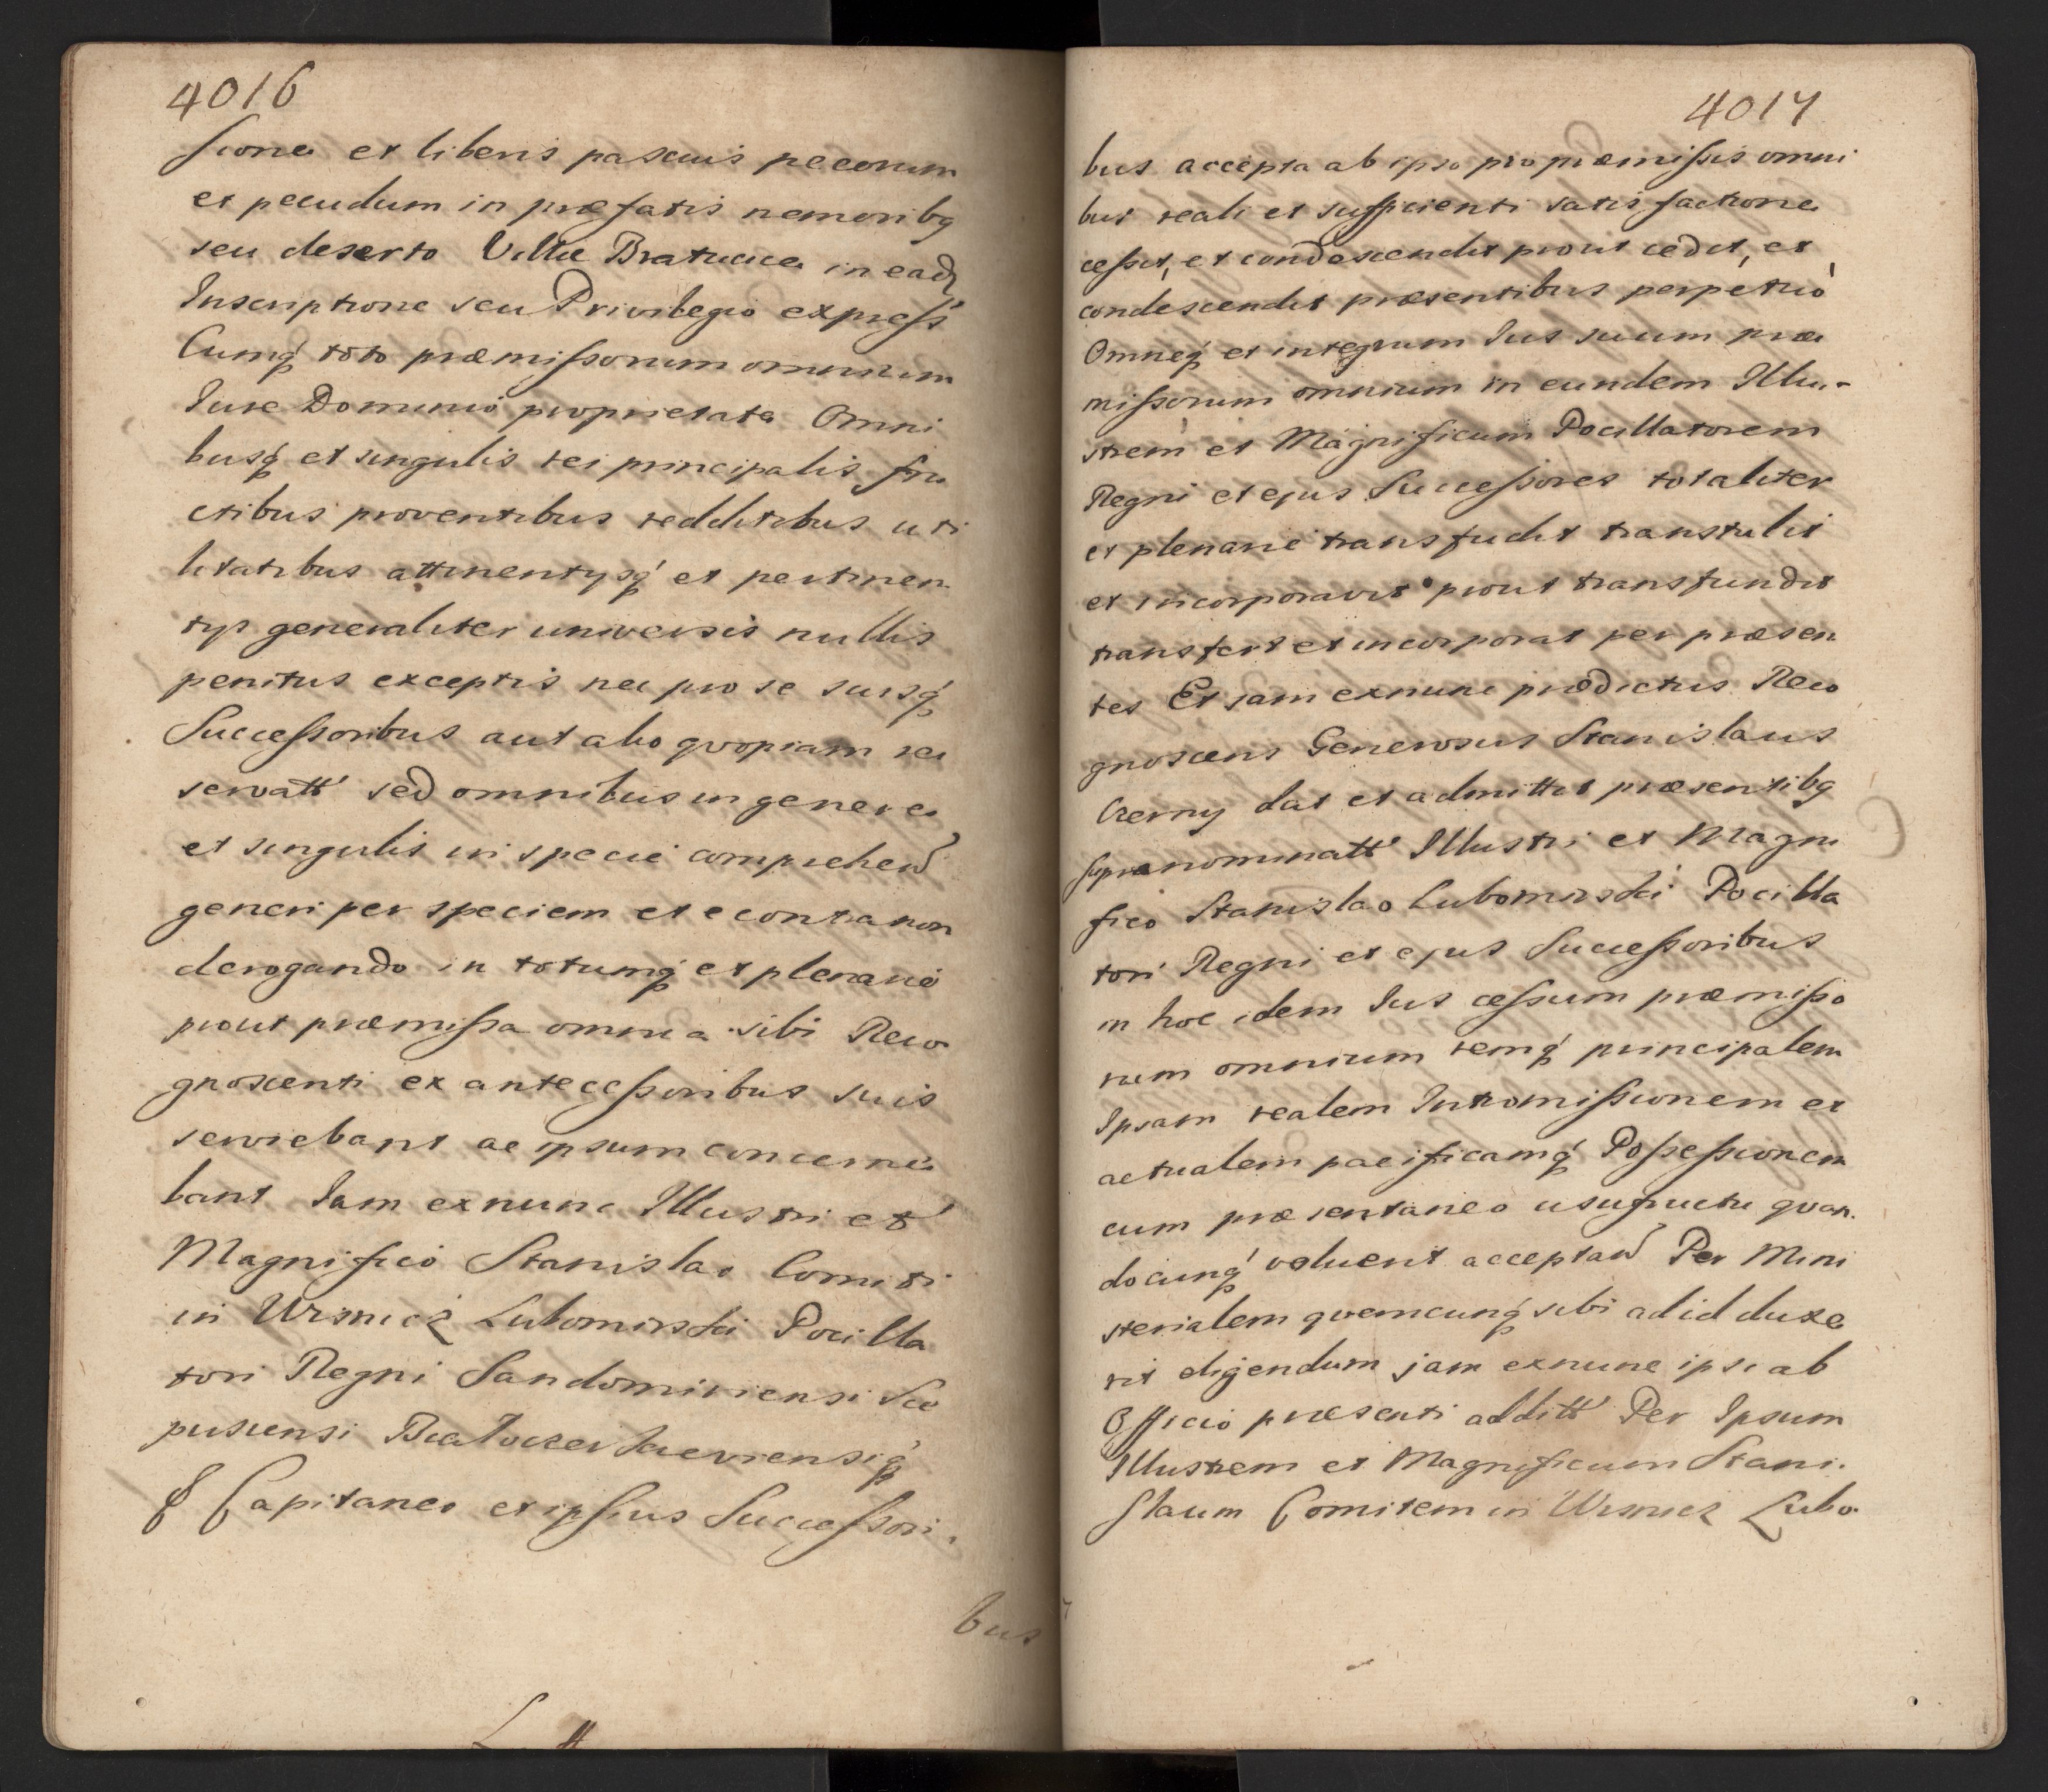 4016
sione et liberis pascuis pecorum
et pecudum in præfatis nemoribq
seu deserto Villæ Bratucice in eadz
Inscriptione seu Privilegio express
Cumq́ toto præmissorum omnium
Iure Dominió proprietate Omni
busq́ et singulis rei principalis fru
ctibus proventibus redditibus uti
litatibus attinentysq́ et pertinen
tys generaliter universis nullis
penitus exceptis nec pro se suisq́
Successoribus aut alio qvopiam re
servatt sed omnibus in genere
et singulis in specie comprehen
generi per speciem et e contra non
derogando in totumq́ et plenarié
prout præmissa omnia sibi Reco
gnoscenti ex antecessoribus suis
serviebant ac ipsum concerne
bant Iam exnunc Illustri et
Magnificó Stanislao Comiti
in Wisnicz Lubomirski Pocilla
tori Regni Sandomiriensi Sce
pusiensi
Capitaneo et ipsius Successori
bus
4017
bus accepta ab ipso pro præmissis omni
bus reali et sufficienti satisfactione
cessit, et condescendit prout cedit, et
condescendit præsentibus perpetuó
Omneq́ et integrum Ius suum præ
missorum omnium in eundem Illu-
strem et Magnificum Pocillatorem
Regni et ejus Successores totaliter
et plenarie transfudit transtulit
et incorporavit prout transfundit
transfert et incorporat per præsen
tes Et jam exnunc prædictus Reco
gnoscens Generosus Stanislaus
Czerny dat et admittit præsentibq
supranominatt Illustri et Magni
fico Stanislao Lubomirski Pocilla
tori Regni et ejus Successoribus
in hoc idem Ius cessum præmisso
rum omnium remq́ principalem
Ipsam realem Intromissionem et
actualem pacificamq́ Possessionem
cum præsentaneo usufructu qvan
docunq́ voluerit acceptan Per Mini
sterialem qvemcunq́ sibi ad id duxe
rit eligendum jam exnunc ipsi ab
Officio præsenti additt Per Ipsum
Illustrem et Magnificum Stani
slaum Comitem in Wisnicz Lubo